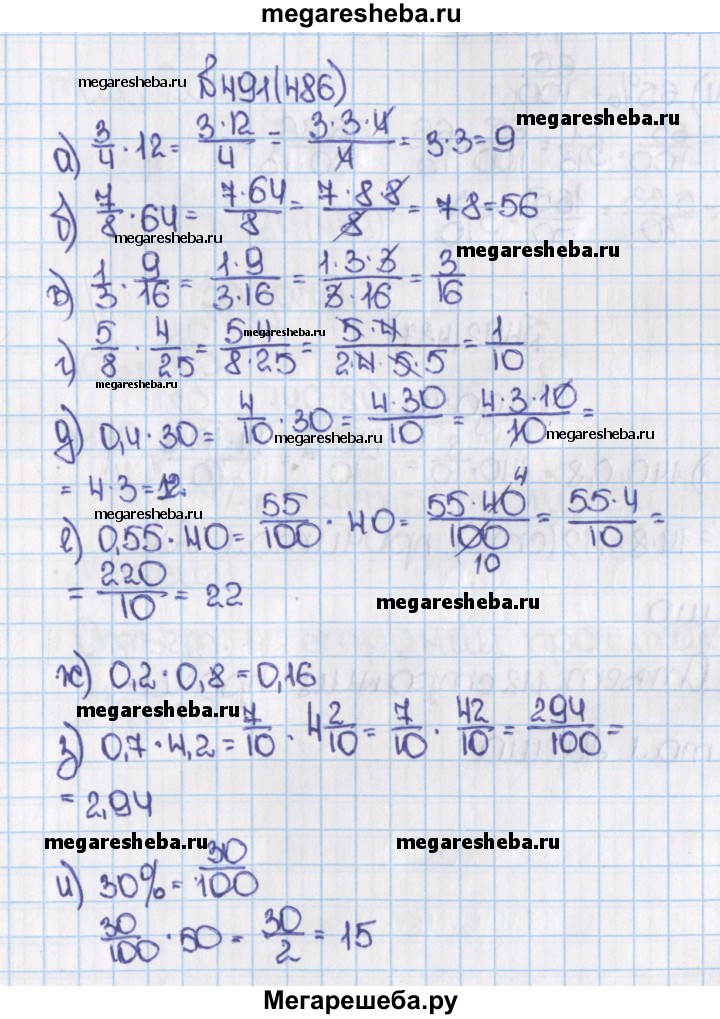 megaresheba.ru
megaresheba.ru
№491(486)
megaresheba.ru
а) 3/4 · 12 = 3·12/4 = 3·3·4/4 = 3·3=9
megaresheba.ru
б) 7/8 · 64 = 7·64/8 = 7·8·8/8 = 7 8=56
megaresheba.ru
megaresheba.ru
в) 1/3 · 9/16 = 1·9/3·16 = 1·3·3/3·16 = 3/16
megaresheba.ru
г) 5/8 · 4/25 = 5·4/8·25 = 5·4/2·4·5·5 = 1/10
megaresheba.ru
megaresheba.ru
д) 0,4·30= 4/10 · 30 = 4·30/10 = 4·3·10/10 =
megaresheba.ru
megaresheba.ru
= 4·3=12.
megaresheba.ru
е) 0,55·40= 55/100 · 40= 55·40/100 = 55·4/10 =
4
10
= 220/10 = 22
megaresheba.ru
ж) 0,2·0,8=0,16
megaresheba.ru
з) 0,7·4,2= 7/10 · 4 2/10 = 7/10 · 42/10 = 294/100 =
= 2,94
megaresheba.ru
megaresheba.ru
и) 30%= 30/100
30/100 · 50 = 30/2 = 15
Мегарешеба.ру